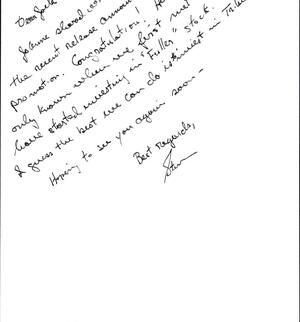 Dear Jack
Joanne shared
the recent release
promotion. Congratulations!
only known when we first met
have started investing in "Fuller" stock.
I guess the best we can do is invest in
Hoping to see you again soon -
Best Regards,
Stan